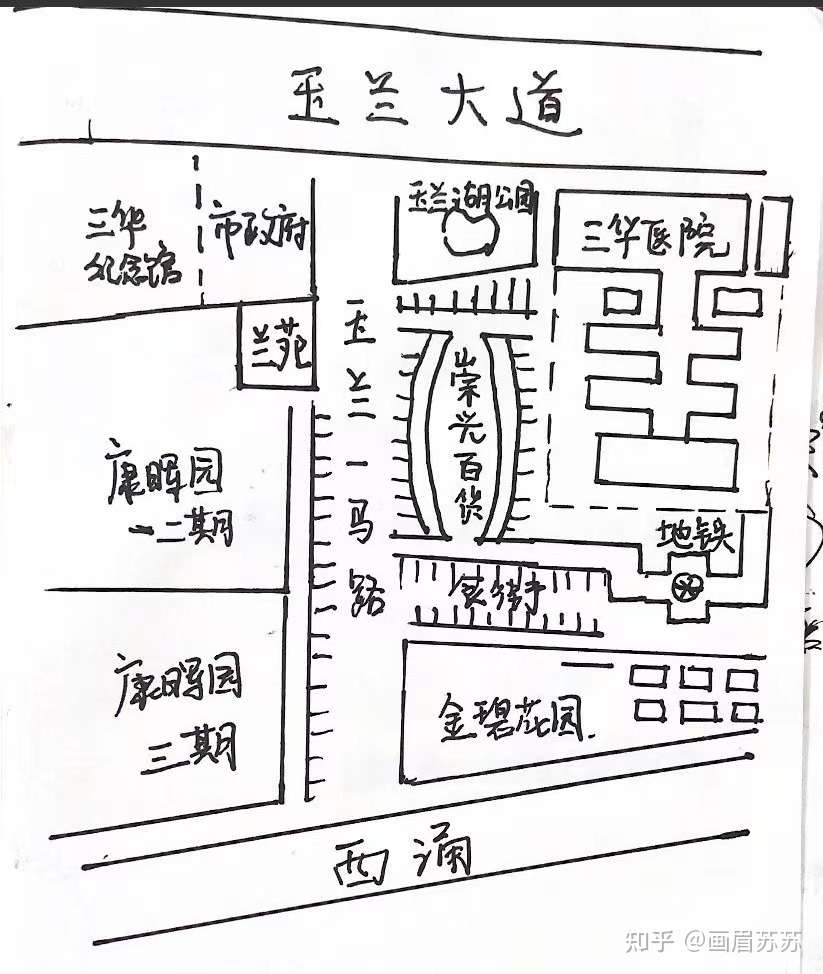 玉兰大道
三华
纪念馆
市政府
玉兰湖公园
三华医院
兰苑
玉兰一马路
崇光百货
康晖园
一二期
地铁
美食街
康晖园
三期
金碧花园
西涌
知乎 @画眉苏苏